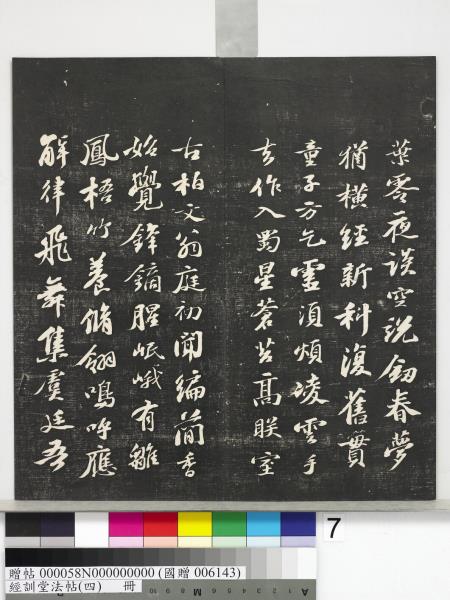 葉零夜談空說劍春夢
猶橫經新科復舊貫
童子方乞靈須煩凌雲手
去作入蜀星蒼苔高朕室
古柏文翁庭初聞編簡香
始覺鋒鏑腥岷峨有雛
鳳梧竹養脩翎鳴呼應
嶰律飛舞集虞廷吾
7
贈帖 000058N000000000 (國贈 006143)
經訓堂法帖(四) 冊